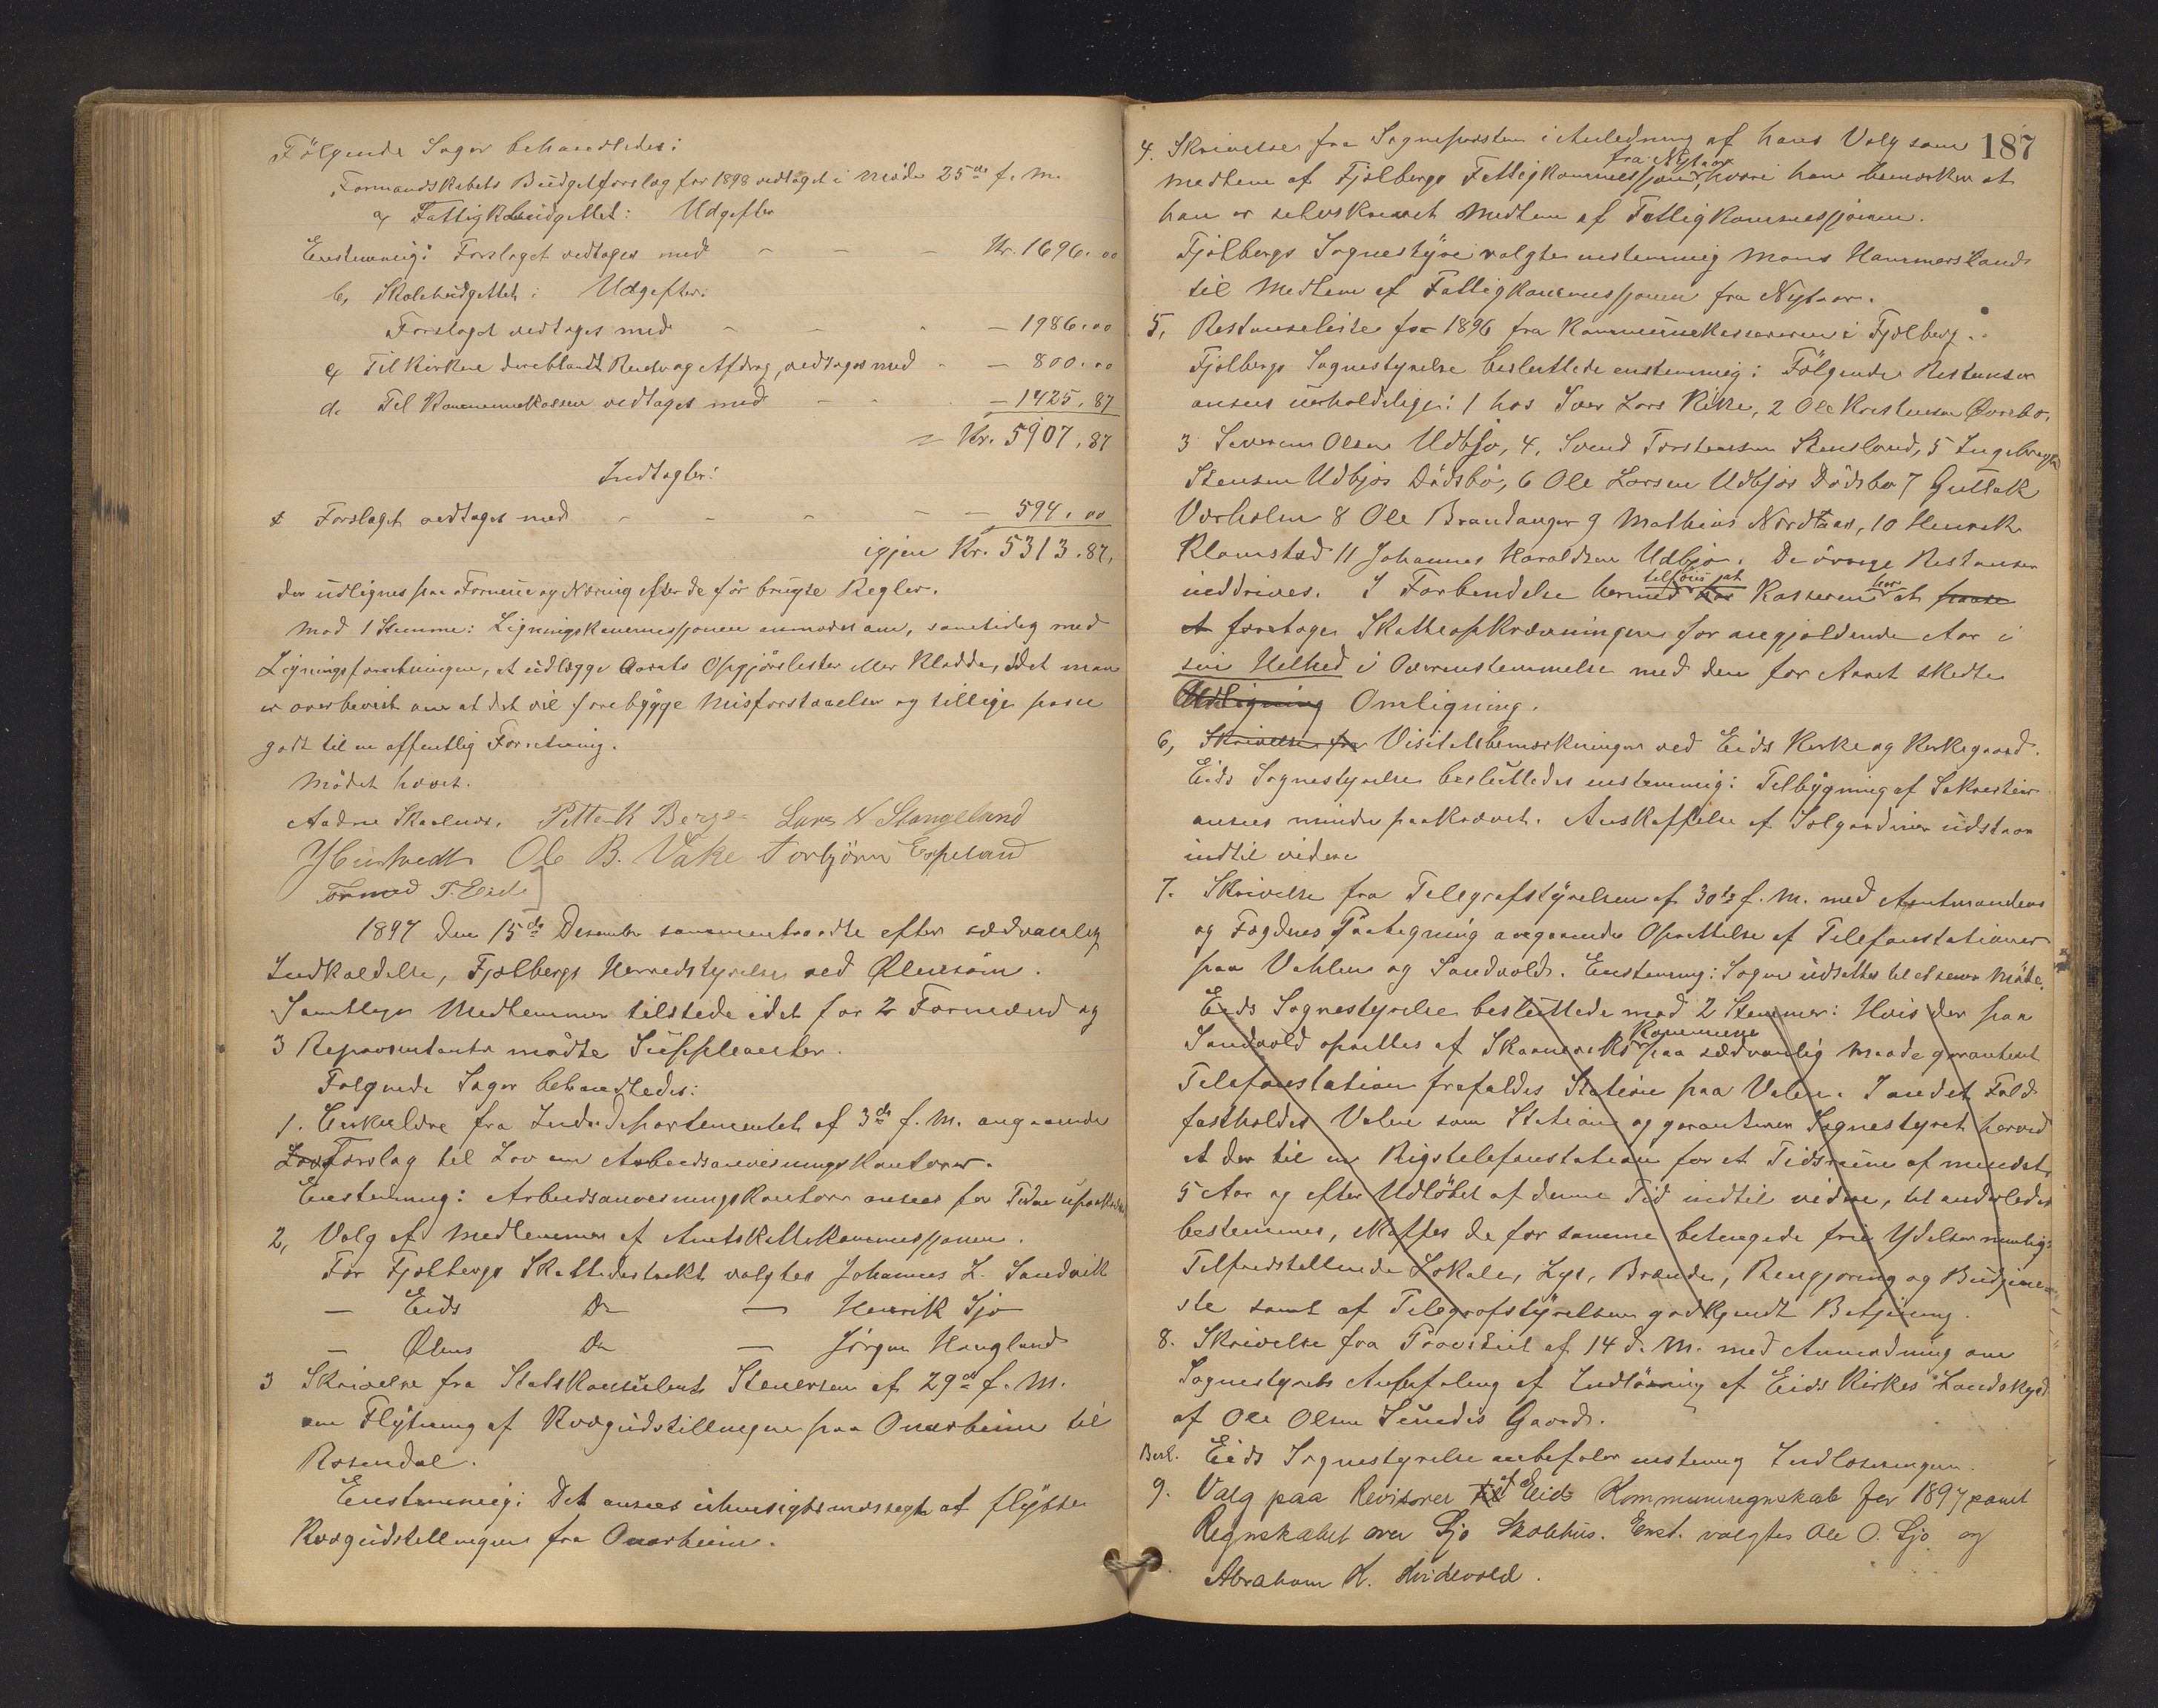 Følgende Sager behandledes:
Formandskabets Budgetforslag for 1898 vedtaget i Møde 25de f. M.
a, Fattigbudgettet: Udgifter
Enstemmig: Forslaget vedtages med - - - Kr. 1696.00
b, Skolebudgettet: Udgifter:
Forslaget vedtages med - - - - 1986.00
c, Til Kirkene dereblandt Renter og Afdrag, vedtages med - - 800.00
d. Til Kommunekassen vedtages med - - - 1425,87
= Kr. 5907,87
Indtægter:
Forslaget vedtages med - - - - - 594.00
igjen Kr. 5313.87,
der udlignes paa Formue og Næring efter de før brugte Regler.
Mod 1 Stemme: Ligningskommissjonen anmodes om, samtidig med
Ligningsforretningen, at udlægge Aarets Opgjørslister eller Kladde, idet man
er overbevist om at det vil forebygge Misforstaaelser og tillige passe
godt til en offentlig Forretning.
Mødet hævet.
Aadne Skaalnes. Petter K Berge Lars N Stangeland
Ole B. Vake Torbjörn Espeland
Tormod T. Eide
1897 den 15de Desember sammentraadte efter sædvanlig
Indkaldelse, Fjelbergs Herredstyrelse ved Ølensøen.
Samtlige Medlemmer tilstede idet for 2 Formænd og
3 Repræsentanter mødte Suppleanter.
Følgende Sager behandledes:
1. Cirkulære fra Indredepartementet af 3de f. M. angaaende
Lov Forslag til Lov om Arbeidsanvisningskontorer.
Enstemmig: Arbeidsanvisningskontorer ansees for Tiden upaakrævet
2, Valg af Medlemmer af Amtsskattekommissjonen.
For Fjelbergs Skattedistrikt valgtes Johannes L. Sandvik
— Eids Do — Henrik Sjo
— Ølens Do — Jørgen Haugland
3 Skrivelse fra Statskonsulent Stenersen af 29de f. M.
om Flytning af Kvægudstillingen paa Onarheim til
Rosendal.
Enstemmig: Det ansees uhensigtsmæssigt at flytte
Kvægudstillingen fra Onarheim.
187
4. Skrivelse fra Sognepresten i Anledning af hans Valg som
fra Nytaar
Medlem af Fjelbergs Fattigkommissjon, hvori han bemærker at
han er selvskrevet Medlem af Fattigkommissjonen.
Fjelbergs Sognestyre valgte enstemmig Mons Hammersland
til Medlem af Fattigkommissjonen fra Nytaar.
5, Restanseliste for 1896 fra Kommunekassereren i Fjelberg.
Fjelbergs Sognestyrelse besluttede enstemmig: Følgende Restanser
ansees uerholdelige: 1 hos Iver Lars Rike, 2 Ole Kristensen Øvrebø,
3 Severin Olsen Udbjo, 4, Svend Torstensen Stensland, 5 Ingebregt
Stensen Udbjos Dødsbo, 6 Ole Larsen Udbjos Dødsbo 7 Guttak
Varholm 8 Ole Brandanger 9 Mathias Nordtaar, 10 Henrik
Klamstad 11 Johannes Haraldsen Udbjo. De øvrige Restanser
tilføies at har
inddrives. I Forbindelse hermed Kasseren at
at foretage Skatteopkrævningen for angjældende Aar i
sin Helhed i Overenstemmelse med den for Aaret skedte
Udligning Omligning.
6, Skrivelse fra Visitatsbemærkninger ved Eids Kirke og Kirkegaard.
Eids Sognestyrelse besluttedes enstemmig: Tilbygning af Sakresti
ansees mindre paakrævet. Anskaffelse af Solgardiner udstaar
indtil videre
7. Skrivelse fra Telegrafstyrelsen af 30te f. M. med Amtmandens
og Fogdens Paategning angaaende Oprettelse af Telefonstationer
paa Vahlen og Sandvold. Enstemmig: Sagen udsættes til et senere Møde.
Eids Sognestyrelse besluttede mod 2 Stemmer: Hvis der paa
Kommune
Sandvold oprettes af Skaanevik paa sædvanlig Maade garanteret
Telefonstation frafaldes Station paa Valen. I andet Fald
fastholdes Valen som Station og garanterer Sognestyret herved
at der til en Rigstelefonstation for et Tidsrum af mindst
5 Aar og efter Udløbet af denne Tid indtil videre, til anderledes
bestemmes, skaffes de for samme betingede frie Ydelser nemlig:
Tilfredstillende Lokale, Lys, Brænde, Rengjøring og Budtjene-
ste samt af Telegrafstyrelsen godkjendt Betjening.
8. Skrivelse fra Provsten af 14 d. M. med Anmodning om
Sognestyrets Anbefaling af Indløsning af Eids Kirkes Landskyld
af Ole Olsen Sundes Gaard.
Besl. Eids Sognestyrelse anbefaler enstemmig Indløsningen.
9. Valg paa Revisorer til af Eids Kommuneregnskab for 1897 samt
Regnskabet over Sjo Skolehus. Enst. valgtes Ole O. Sjo og
Abraham K. Kvidevold.